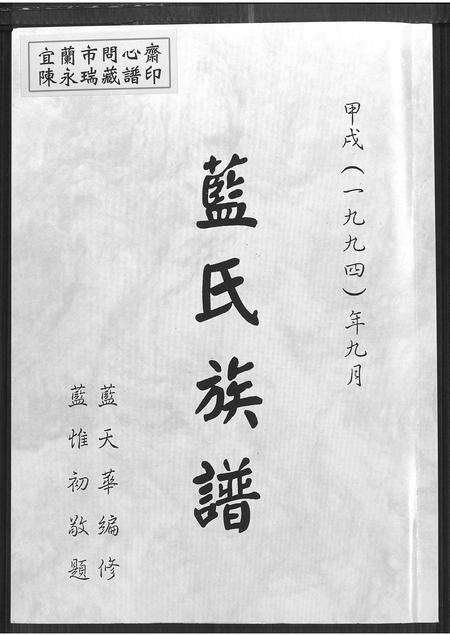 宜蘭市問心齋
陳永瑞藏譜印
甲戌(一九九四)年九月
藍氏族譜
藍天華編修
藍惟初敬題